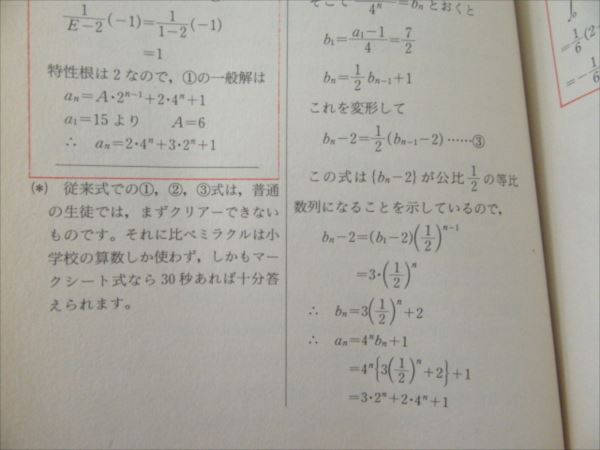 1/(E−2)(−1)=1/(1−2)(−1)
=1
特性根は2なので，①の一般解は
aₙ=A・2ⁿ⁻¹+2・4ⁿ+1
a₁=15より A=6
∴ aₙ=2・4ⁿ+3・2ⁿ+1
(*) 従来式での①，②，③式は，普通
の生徒では，まずクリアーできない
ものです。それに比べミラクルは小
学校の算数しか使わず，しかもマー
クシート式なら30秒あれば十分答
えられます。
4ⁿ =bₙとおくと
b₁=(a₁−1)/4=7/2
bₙ=1/2 bₙ₋₁+1
これを変形して
bₙ−2=1/2(bₙ₋₁−2) ……③
この式は{bₙ−2}が公比1/2の等比
数列になることを示しているので，
bₙ−2=(b₁−2)(1/2)ⁿ⁻¹
=3・(1/2)ⁿ
∴ bₙ=3(1/2)ⁿ+2
∴ aₙ=4ⁿbₙ+1
=4ⁿ{3(1/2)ⁿ+2}+1
=3・2ⁿ+2・4ⁿ+1
=1/6(2
=−1/6